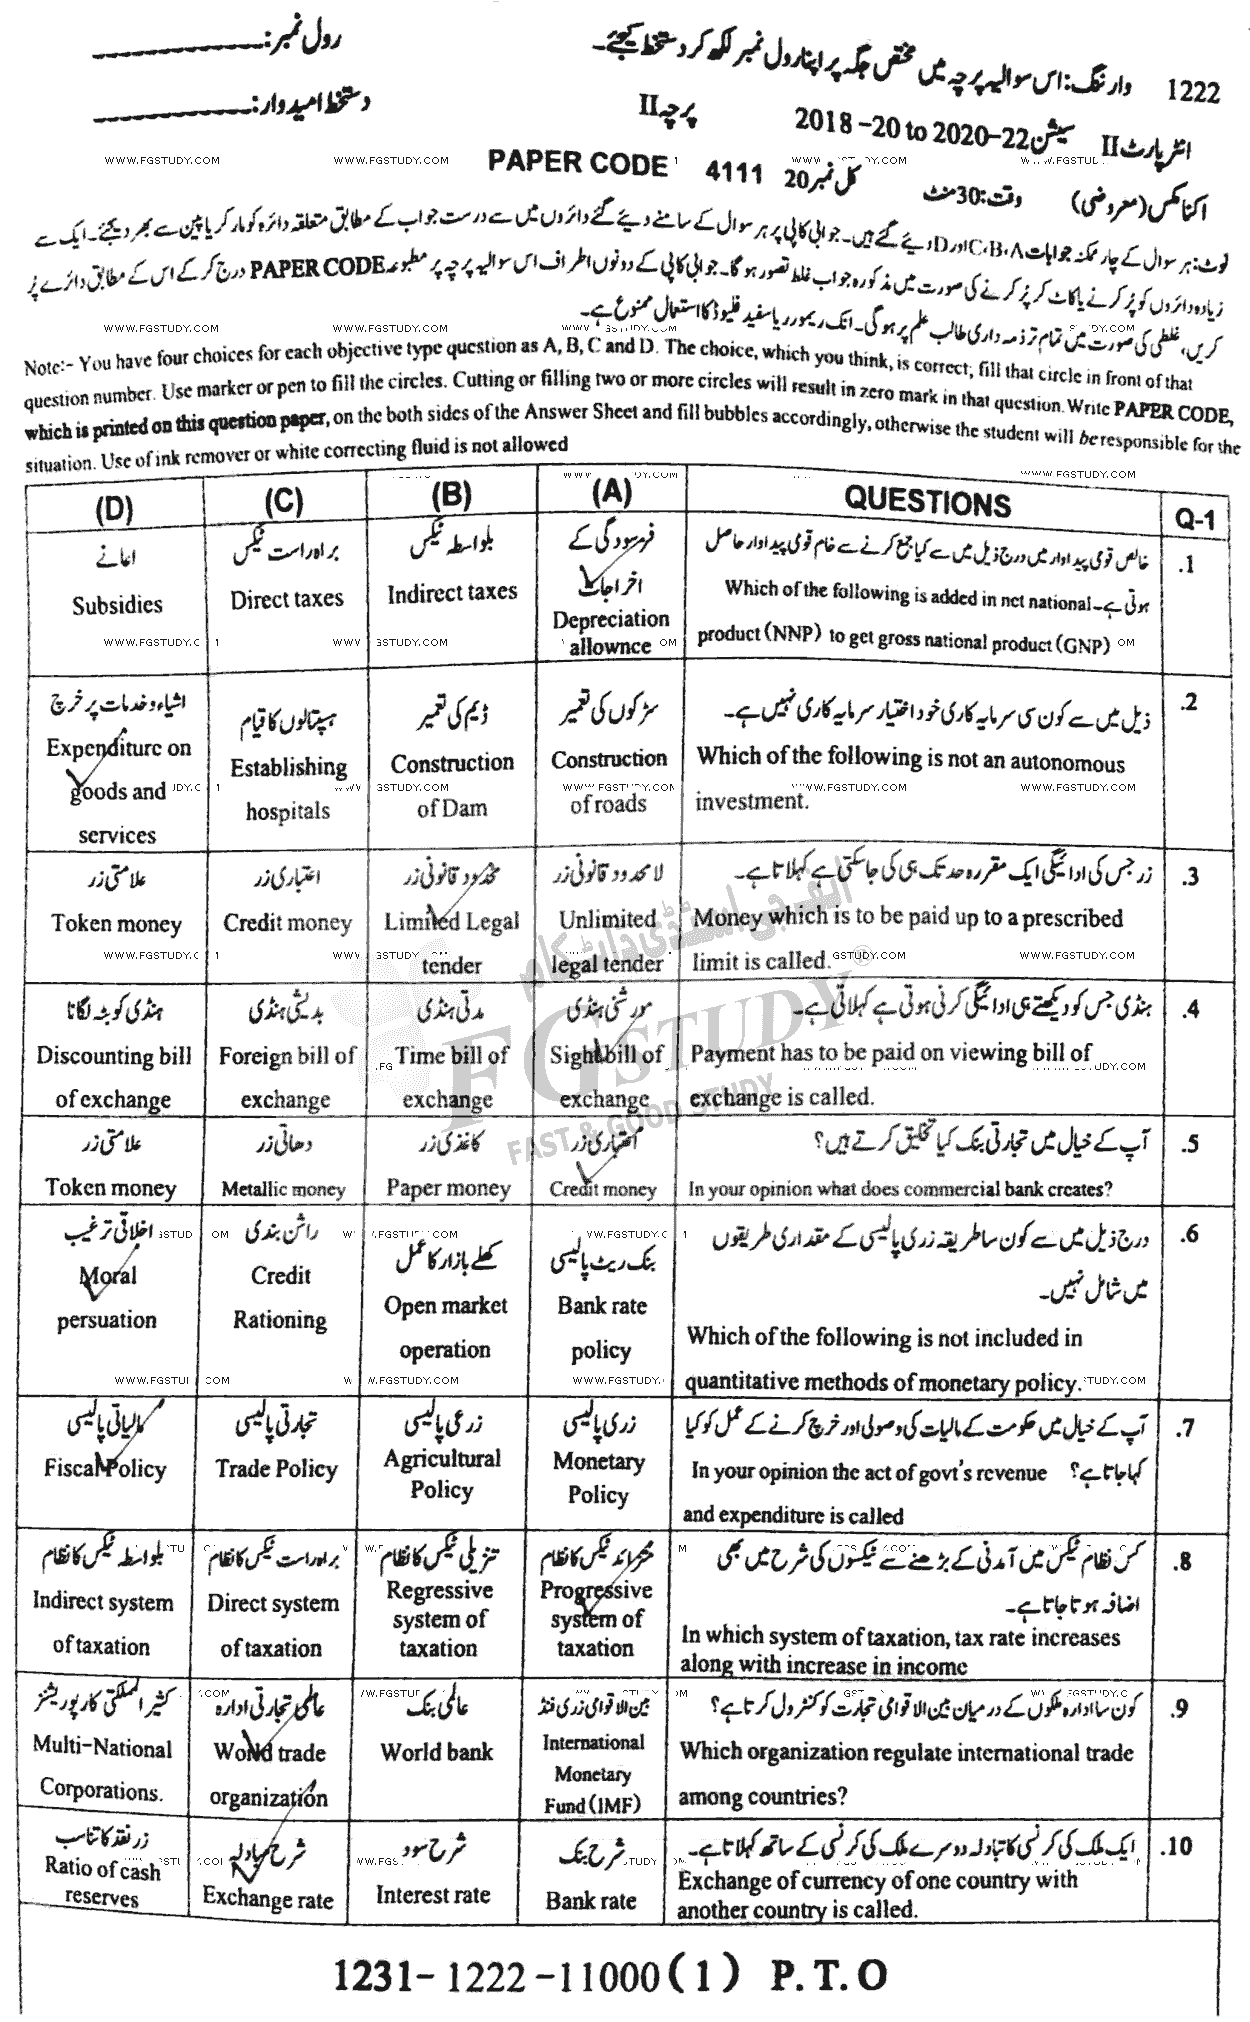 1222 وارننگ: اس سوالیہ پرچہ میں مختص جگہ پر اپنا رول نمبر لکھ کر دستخط کیجئے۔ رول نمبر:
انٹر پارٹ II سیشن 2018-20 to 2020-22 پرچہ II دستخط امیدوار:
اکنامکس (معروضی) وقت: 30 منٹ کل نمبر 20 PAPER CODE 4111
نوٹ: ہر سوال کے چار ممکنہ جوابات A، B، C اور D دیئے گئے ہیں۔ جوابی کاپی پر ہر سوال کے سامنے دیئے گئے دائروں میں سے درست جواب کے مطابق متعلقہ دائرہ کو مارکر یا پین سے بھر دیجئے۔ ایک سے
زیادہ دائروں کو پُر کرنے یا کاٹ کر پُر کرنے کی صورت میں مذکورہ جواب غلط تصور ہو گا۔ جوابی کاپی کے دونوں اطراف اس سوالیہ پرچہ پر مطبوعہ PAPER CODE درج کر کے اس کے مطابق دائرے پُر
کریں، غلطی کی صورت میں تمام تر ذمہ داری طالب علم پر ہو گی۔ انک ریمور یا سفید فلیوڈ کا استعمال ممنوع ہے۔
Note:- You have four choices for each objective type question as A, B, C and D. The choice, which you think, is correct; fill that circle in front of that
question number. Use marker or pen to fill the circles. Cutting or filling two or more circles will result in zero mark in that question. Write PAPER CODE,
which is printed on this question paper, on the both sides of the Answer Sheet and fill bubbles accordingly, otherwise the student will be responsible for the
situation. Use of ink remover or white correcting fluid is not allowed
(D) (C) (B) (A) QUESTIONS Q-1
.1 خالص قومی پیداوار میں درج ذیل میں سے کیا جمع کرنے سے خام قومی پیداوار حاصل
ہوتی ہے۔ Which of the following is added in net national
product (NNP) to get gross national product (GNP)
فرسودگی کے
اخراجات
Depreciation
allownce
بلواسطہ ٹیکس
Indirect taxes
براہ راست ٹیکس
Direct taxes
اعانے
Subsidies
.2 ذیل میں سے کون سی سرمایہ کاری خود اختیار سرمایہ کاری نہیں ہے۔
Which of the following is not an autonomous
investment.
سڑکوں کی تعمیر
Construction
of roads
ڈیم کی تعمیر
Construction
of Dam
ہسپتالوں کا قیام
Establishing
hospitals
اشیاء و خدمات پر خرچ
Expenditure on
goods and
services
.3 زر جس کی ادائیگی ایک مقررہ حد تک ہی کی جا سکتی ہے کہلاتا ہے۔
Money which is to be paid up to a prescribed
limit is called.
لا محدود قانونی زر
Unlimited
legal tender
محدود قانونی زر
Limited Legal
tender
اعتباری زر
Credit money
علامتی زر
Token money
.4 ہنڈی جس کو دیکھتے ہی ادائیگی کرنی ہوتی ہے کہلاتی ہے۔
Payment has to be paid on viewing bill of
exchange is called.
درشنی ہنڈی
Sight bill of
exchange
مدتی ہنڈی
Time bill of
exchange
بدیشی ہنڈی
Foreign bill of
exchange
ہنڈی کو بٹہ لگانا
Discounting bill
of exchange
.5 آپ کے خیال میں تجارتی بنک کیا تخلیق کرتے ہیں؟
In your opinion what does commercial bank creates?
اعتباری زر
Credit money
کاغذی زر
Paper money
دھاتی زر
Metallic money
علامتی زر
Token money
.6 درج ذیل میں سے کون سا طریقہ زری پالیسی کے مقداری طریقوں
میں شامل نہیں۔
Which of the following is not included in
quantitative methods of monetary policy.
بنک ریٹ پالیسی
Bank rate
policy
کھلے بازار کا عمل
Open market
operation
راشن بندی
Credit
Rationing
اخلاقی ترغیب
Moral
persuation
.7 آپ کے خیال میں حکومت کے مالیات کی وصولی اور خرچ کرنے کے عمل کو کیا
کہا جاتا ہے؟ In your opinion the act of govt's revenue
and expenditure is called
زری پالیسی
Monetary
Policy
زرعی پالیسی
Agricultural
Policy
تجارتی پالیسی
Trade Policy
مالیاتی پالیسی
Fiscal Policy
.8 کس نظام ٹیکس میں آمدنی کے بڑھنے سے ٹیکسوں کی شرح میں بھی
اضافہ ہوتا جاتا ہے۔
In which system of taxation, tax rate increases
along with increase in income
متزائد ٹیکس کا نظام
Progressive
system of
taxation
تنزیلی ٹیکس کا نظام
Regressive
system of
taxation
براہ راست ٹیکس کا نظام
Direct system
of taxation
بلواسطہ ٹیکس کا نظام
Indirect system
of taxation
.9 کون سا ادارہ ملکوں کے درمیان بین الاقوامی تجارت کو کنٹرول کرتا ہے؟
Which organization regulate international trade
among countries?
بین الاقوامی زری فنڈ
International
Monetary
Fund (IMF)
عالمی بنک
World bank
عالمی تجارتی ادارہ
World trade
organization
کثیر الملکی کارپوریشنز
Multi-National
Corporations.
.10 ایک ملک کی کرنسی کا تبادلہ دوسرے ملک کی کرنسی کے ساتھ کہلاتا ہے۔
Exchange of currency of one country with
another country is called.
شرح بنک
Bank rate
شرح سود
Interest rate
شرح مبادلہ
Exchange rate
زر نقد کا تناسب
Ratio of cash
reserves
1231-1222-11000(1) P.T.O
الف جی اسٹڈی ڈاٹ کام
FG STUDY ®
FAST & GOOD STUDY
WWW.FGSTUDY.COM